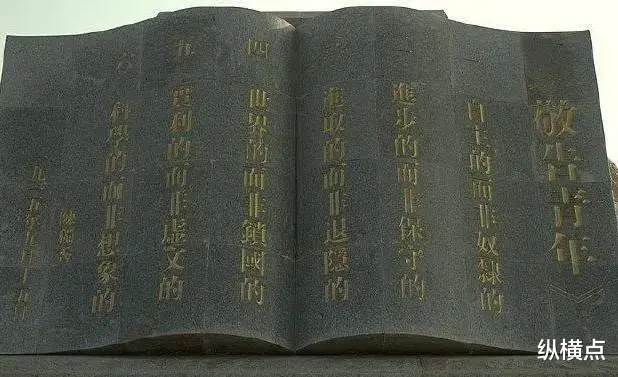 敬告青年
一 自主的而非奴隸的
二 進步的而非保守的
三 進取的而非退隱的
四 世界的而非鎖國的
五 實利的而非虛文的
六 科學的而非想象的
陳獨秀
纵横点